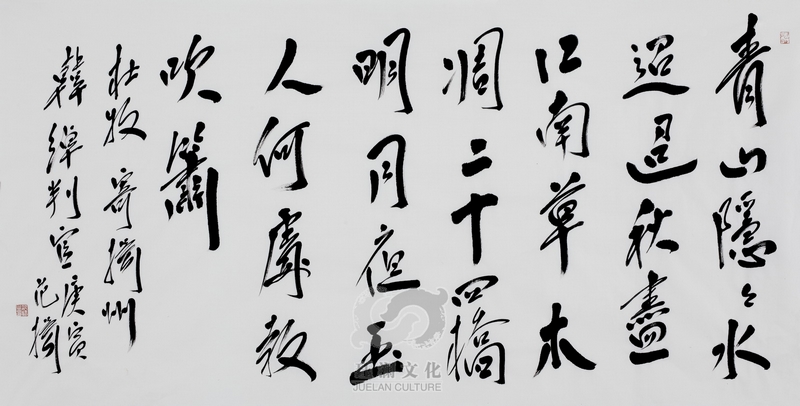 青山隱々水
迢迢秋盡
江南草木
凋二十四橋
明月夜玉
人何處教
吹簫
杜牧寄揚州
韓綽判官庚寅
范揚
文化
JUELAN CULTURE